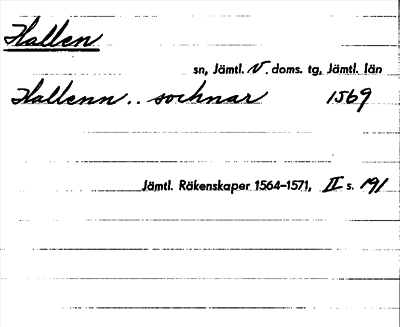 Hallen
sn, Jämtl. V. doms. tg, Jämtl. län
Hallenn.. sochnar 1569
Jämtl. Räkenskaper 1564-1571, II s. 191